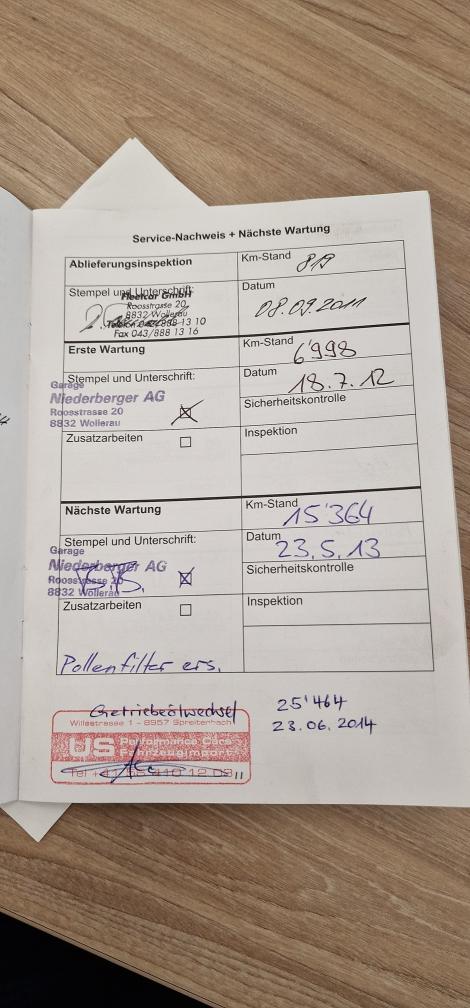 Service-Nachweis + Nächste Wartung
Ablieferungsinspektion
Km-Stand
819
Stempel und Unterschrift:
Fleetcar GmbH
Roosstrasse 20
8832 Wollerau
Telefon 043/888 13 10
Fax 043/888 13 16
Datum
08.09.2011
Erste Wartung
Km-Stand
6998
Stempel und Unterschrift:
Garage
Niederberger AG
Roosstrasse 20
8832 Wollerau
Datum
18.7.12
Sicherheitskontrolle
Zusatzarbeiten
Inspektion
Nächste Wartung
Km-Stand
15'364
Stempel und Unterschrift:
Garage
Niederberger AG
Roosstrasse 20
8832 Wollerau
Datum
23.5.13
Sicherheitskontrolle
Zusatzarbeiten
Inspektion
Pollenfilter ers.
Getriebeölwechsel
25'464
23.06.2014
Willestrasse 1 - 8957 Spreitenbach
US Performance Cars
Fahrzeugimport